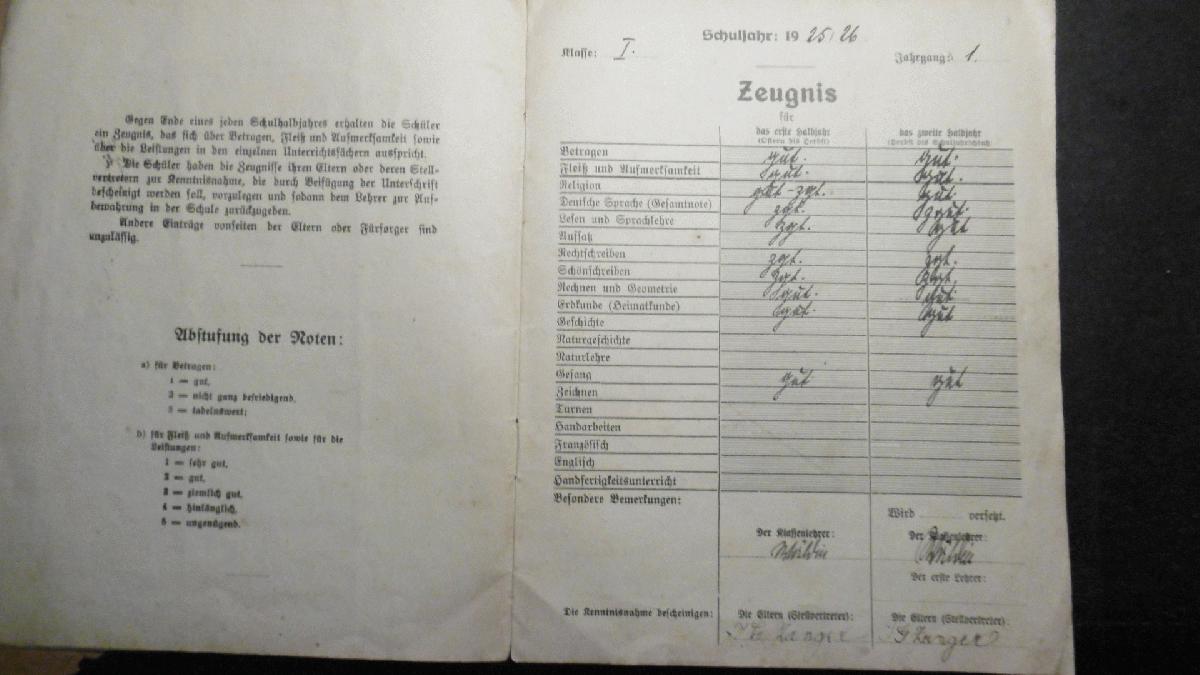 Gegen Ende eines jeden Schulhalbjahres erhalten die Schüler
ein Zeugnis, das sich über Betragen, Fleiß und Aufmerksamkeit sowie
über die Leistungen in den einzelnen Unterrichtsfächern ausspricht.
Die Schüler haben die Zeugnisse ihren Eltern oder deren Stell-
vertretern zur Kenntnisnahme, die durch Beifügung der Unterschrift
bescheinigt werden soll, vorzulegen und sodann dem Lehrer zur Auf-
bewahrung in der Schule zurückzugeben.
Andere Einträge vonseiten der Eltern oder Fürsorger sind
unzulässig.
Abstufung der Noten:
a) für Betragen:
1 = gut,
2 = nicht ganz befriedigend,
3 = tadelnswert;
b) für Fleiß und Aufmerksamkeit sowie für die
Leistungen:
1 = sehr gut,
2 = gut,
3 = ziemlich gut,
4 = hinlänglich,
5 = ungenügend.
Schuljahr: 1925/26
Klasse: I. Jahrgang: 1.
Zeugnis
für
das erste Halbjahr das zweite Halbjahr
(Ostern bis Herbst) (Herbst bis Schuljahrschluß)
Betragen gut. gut.
Fleiß und Aufmerksamkeit gut. gut.
Religion gut-zgt. gut.
Deutsche Sprache (Gesamtnote) zgt. gut.
Lesen und Sprachlehre zgt. gut
Aufsatz
Rechtschreiben zgt. zgt.
Schönschreiben zgt. zgt.
Rechnen und Geometrie gut. gut
Erdkunde (Heimatkunde) gut. gut
Geschichte
Naturgeschichte
Naturlehre
Gesang gut gut
Zeichnen
Turnen
Handarbeiten
Französisch
Englisch
Handfertigkeitsunterricht
Besondere Bemerkungen:
Wird versetzt.
Der Klassenlehrer: Der Klassenlehrer:
Der erste Lehrer:
Die Kenntnisnahme bescheinigen: Die Eltern (Stellvertreter): Die Eltern (Stellvertreter):